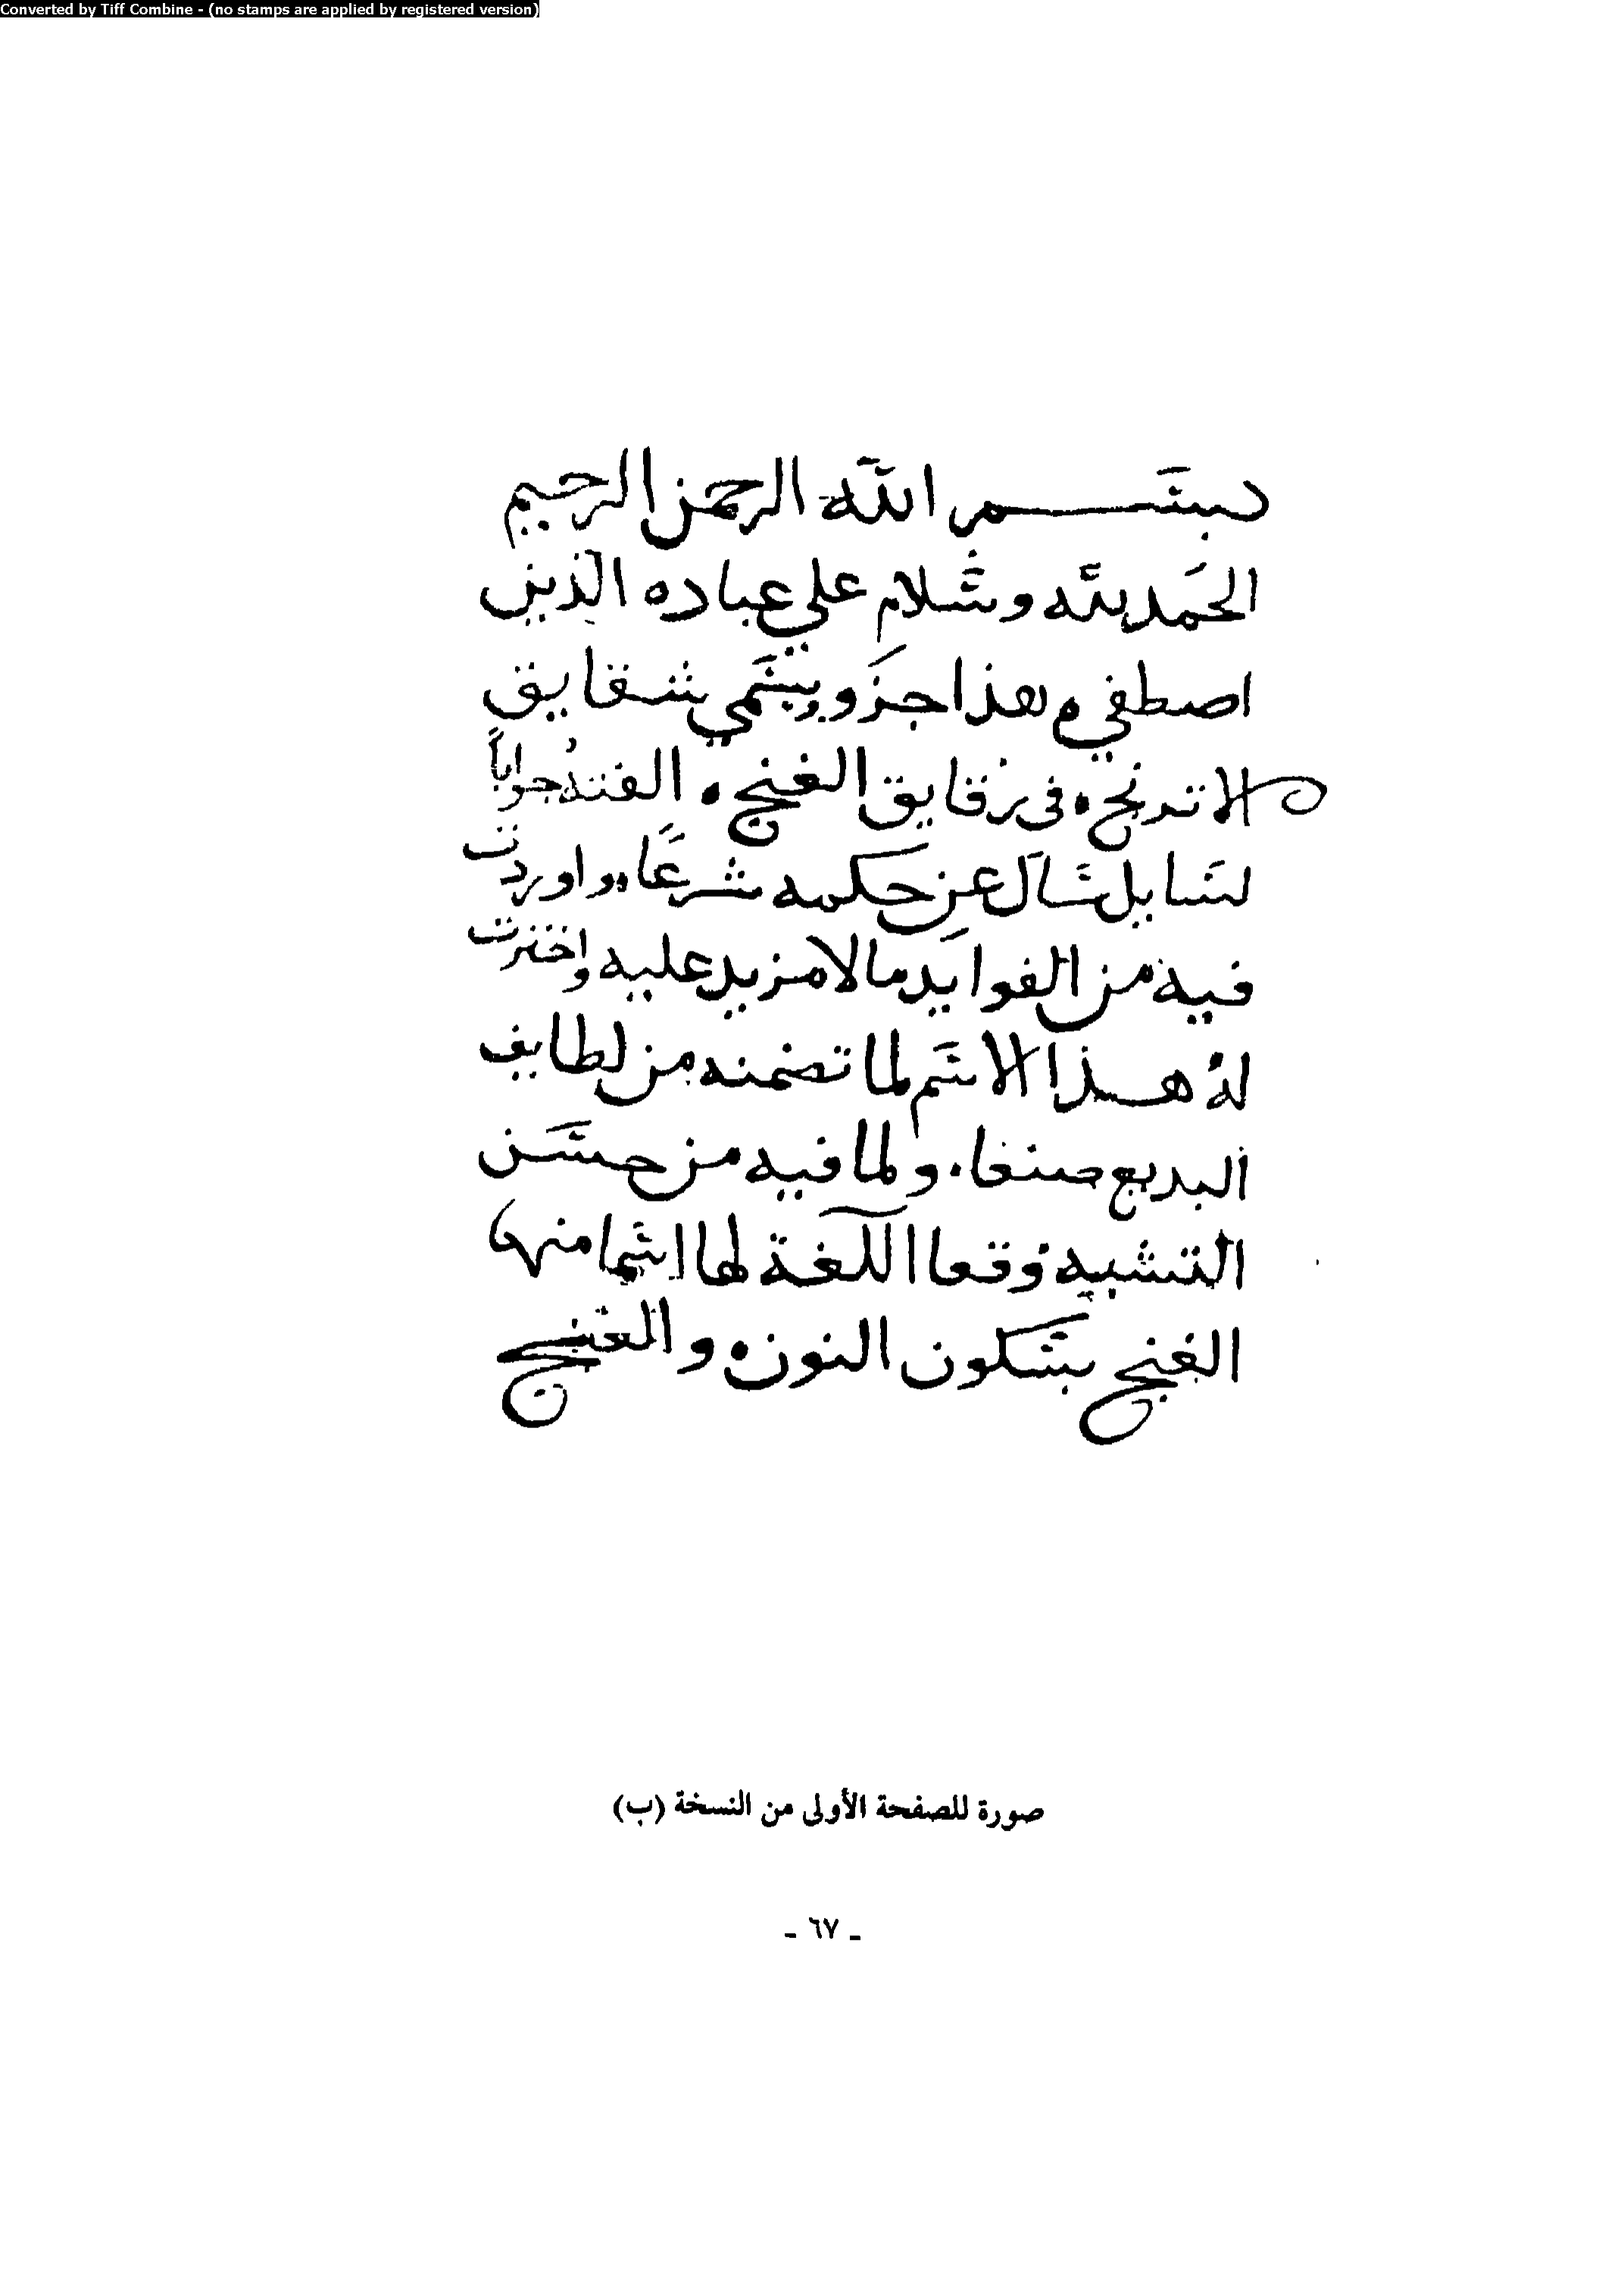 Converted by Tiff Combine - (no stamps are applied by registered version)
بسم الله الرحمن الرحيم
الحمد لله وسلام علي عباده الذين
اصطفي ه هذا جزو يسمي شقايق
الاترنج ه في رقايق الغنج ه الفته جواباً
لسايل سال عن حكمه شرعًا ه واوردت
فيه من الفوايد ما لا مزيد عليه واخترت
له هذا الاسم لما تضمنه من لطايف
البديع صنعا ه ولما فيه من حسن
التشبيه وقعا اللغة لها اسما منها
الغنج بسكون النون ه والغنج
صورة للصفحة الأولى من النسخة (ب)
- ٦٧ -